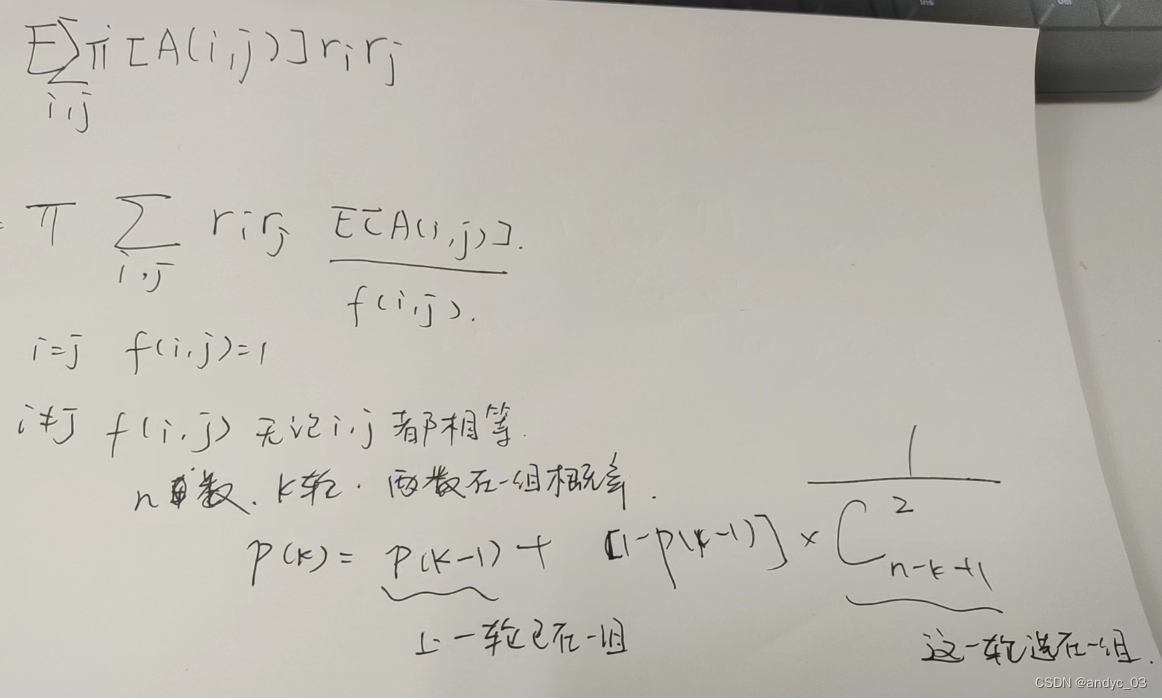 E∑π[A(i,j)]rirj
i,j
= π ∑ rirj E[A(i,j)].
i,j
f(i,j).
i=j f(i,j)=1
i≠j f(i,j) 无论i,j都相等.
n个数. k轮. 两数在一组概率.
P(k)= P(k-1) + [1-p(k-1)] × 1/C²n-k+1
上一轮已在一组
这一轮选在一组.
CSDN @andyc_03